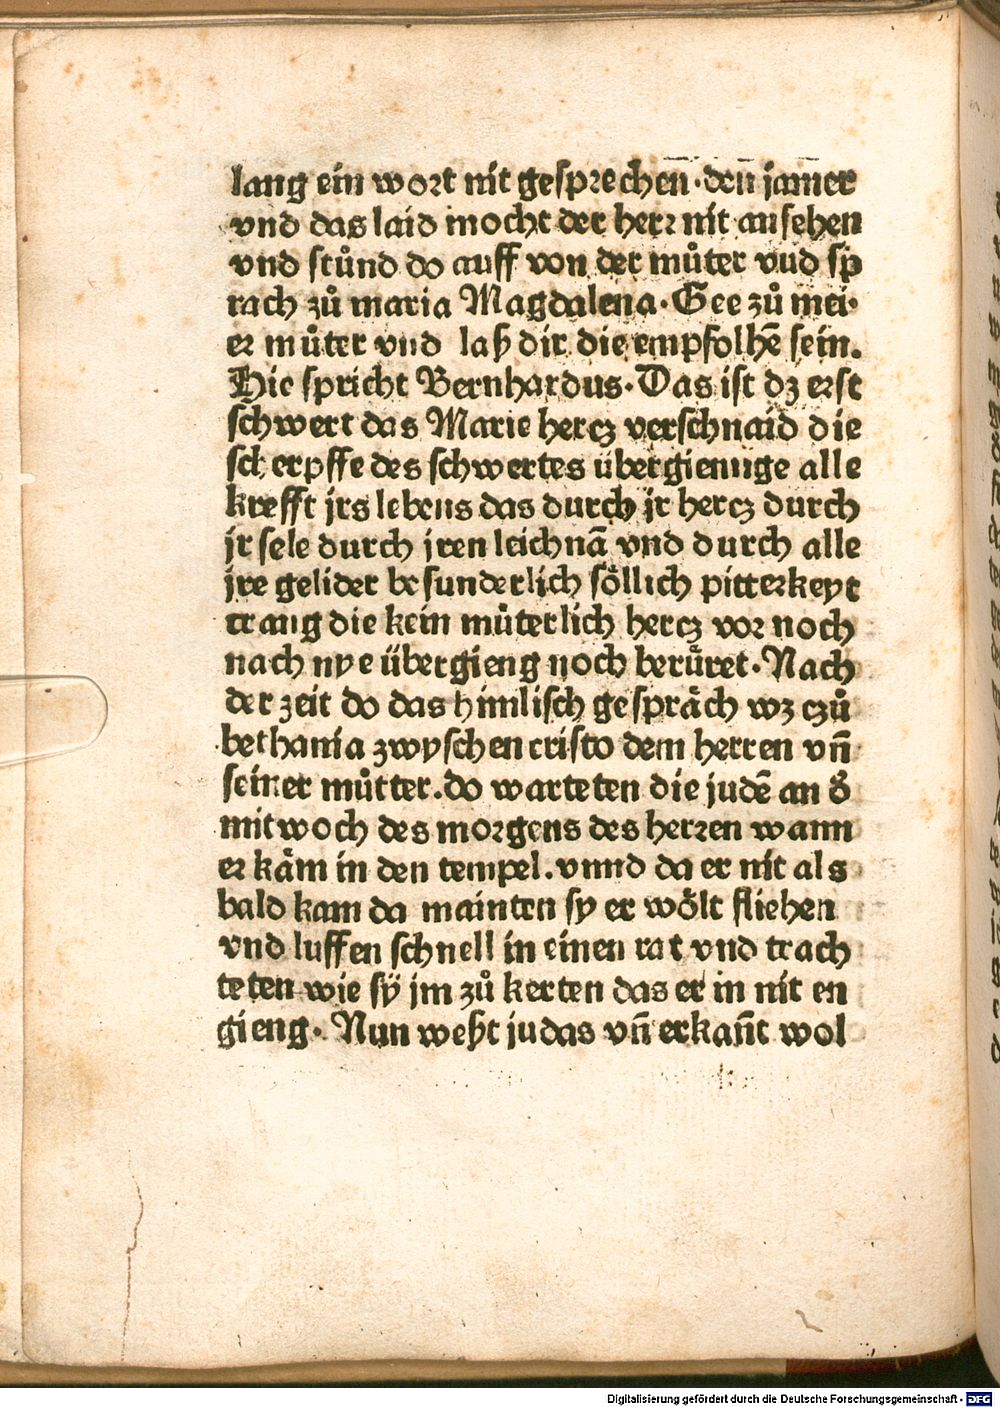 lang ein wort nit gesprechen̄·den̄ jam̄er
vnd das laid mocht der herr nit ansehen
vnd stůnd do auff von der můter vud sp
rach zů maria Magdalena·Gee zů mei·
er můter vnd laß dir die empfolhē sein.
Hie spricht Bernhardus·Das ist dz erst
schwert das Marie hercz verschnaid die
scherpffe des schwertes übergiennge alle
krefft jrs lebens das durch jr hercz durch
jr sele durch jren leichnā vnd durch alle
jre gelider besunderlich söllich pitterkeyt
trang die kein můterlich hercz vor noch
nach nye übergieng noch berüret·Nach
der zeit do das himlisch gespräch wz czů
bethania zwyschen cristo dem herren vn̄
seiner můtter.do warteten die judē an d̄
mitwoch des morgens des herren wann
er käm in den tempel.vnnd da er nit als
bald kam da mainten sy er wölt fliehen
vnd luffen schnell in einen rat vnd trach
teten wie sÿ jm zů kerten das er in nit en
gieng· Nun weßt judas vn̄ erkan̄t wol
Digitalisierung gefördert durch die Deutsche Forschungsgemeinschaft - DFG